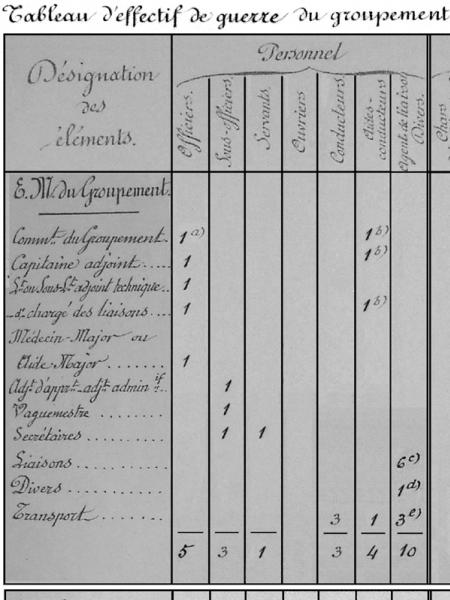 Tableau d'effectif de guerre du groupement
Désignation
des
éléments.
Personnel
Officiers.
Sous-officiers.
Servants.
Ouvriers
Conducteurs
Aides-
conducteurs
Agents de liaison
Divers.
Chars
E. M. du Groupement.
Commt. du Groupement. 1 a) 1 b)
Capitaine adjoint..... 1 1 b)
Lt. ou Sous-Lt. adjoint technique.. 1
_do_ chargé des liaisons... 1 1 b)
Médecin-Major ou
Aide-Major....... 1
Adjt. d'appt. adjt. admin if. 1
Vaguemestre ........ 1
Secrétaires .......... 1 1
Liaisons ............ 6 c)
Divers ............. 1 d)
Transport......... 3 1 3 e)
5 3 1 3 4 10